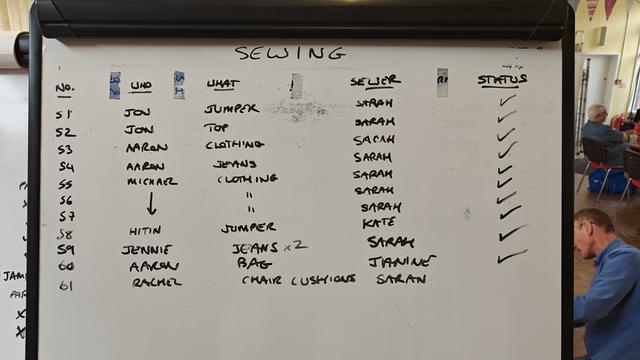 SEWING
NO. WHO WHAT SEWER STATUS
51 JON JUMPER SARAH ✓
52 JON TOP SARAH ✓
53 AARON CLOTHING SARAH ✓
54 AARON JEANS SARAH ✓
55 MICHAEL CLOTHING SARAH ✓
56 " SARAH ✓
57 ↓ " SARAH ✓
58 HITIN JUMPER KATE ✓
59 JENNIE JEANS x2 SARAH ✓
60 AARON BAG JANINE ✓
61 RACHEL CHAIR CUSHIONS SARAH